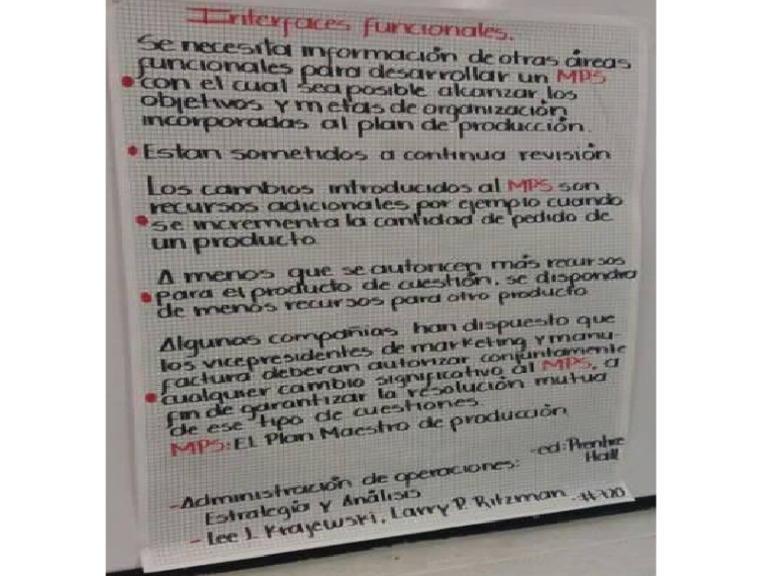 Interfaces funcionales.
Se necesita información de otras áreas
funcionales para desarrollar un MPS
• con el cual sea posible alcanzar los
objetivos y metas de organización
incorporadas al plan de producción.
• Estan sometidos a continua revisión
Los cambios introducidos al MPS son
recursos adicionales por ejemplo cuando
• se incrementa la cantidad de pedido de
un producto
A menos que se autoricen más recursos
• para el producto de cuestión, se dispondra
de menos recursos para otro producto
Algunas compañias han dispuesto que
los vicepresidentes de marketing y manu-
factura deberan autorizar conjuntamente
• cualquier cambio significativo al MPS, a
fin de garantizar la resolución mutua
de ese tipo de cuestiones.
MPS: El Plan Maestro de producción
-Administración de operaciones: -ed: Prentice
Hall
Estrategia y Análisis
- Lee J. Krajewski, Larry P. Ritzman